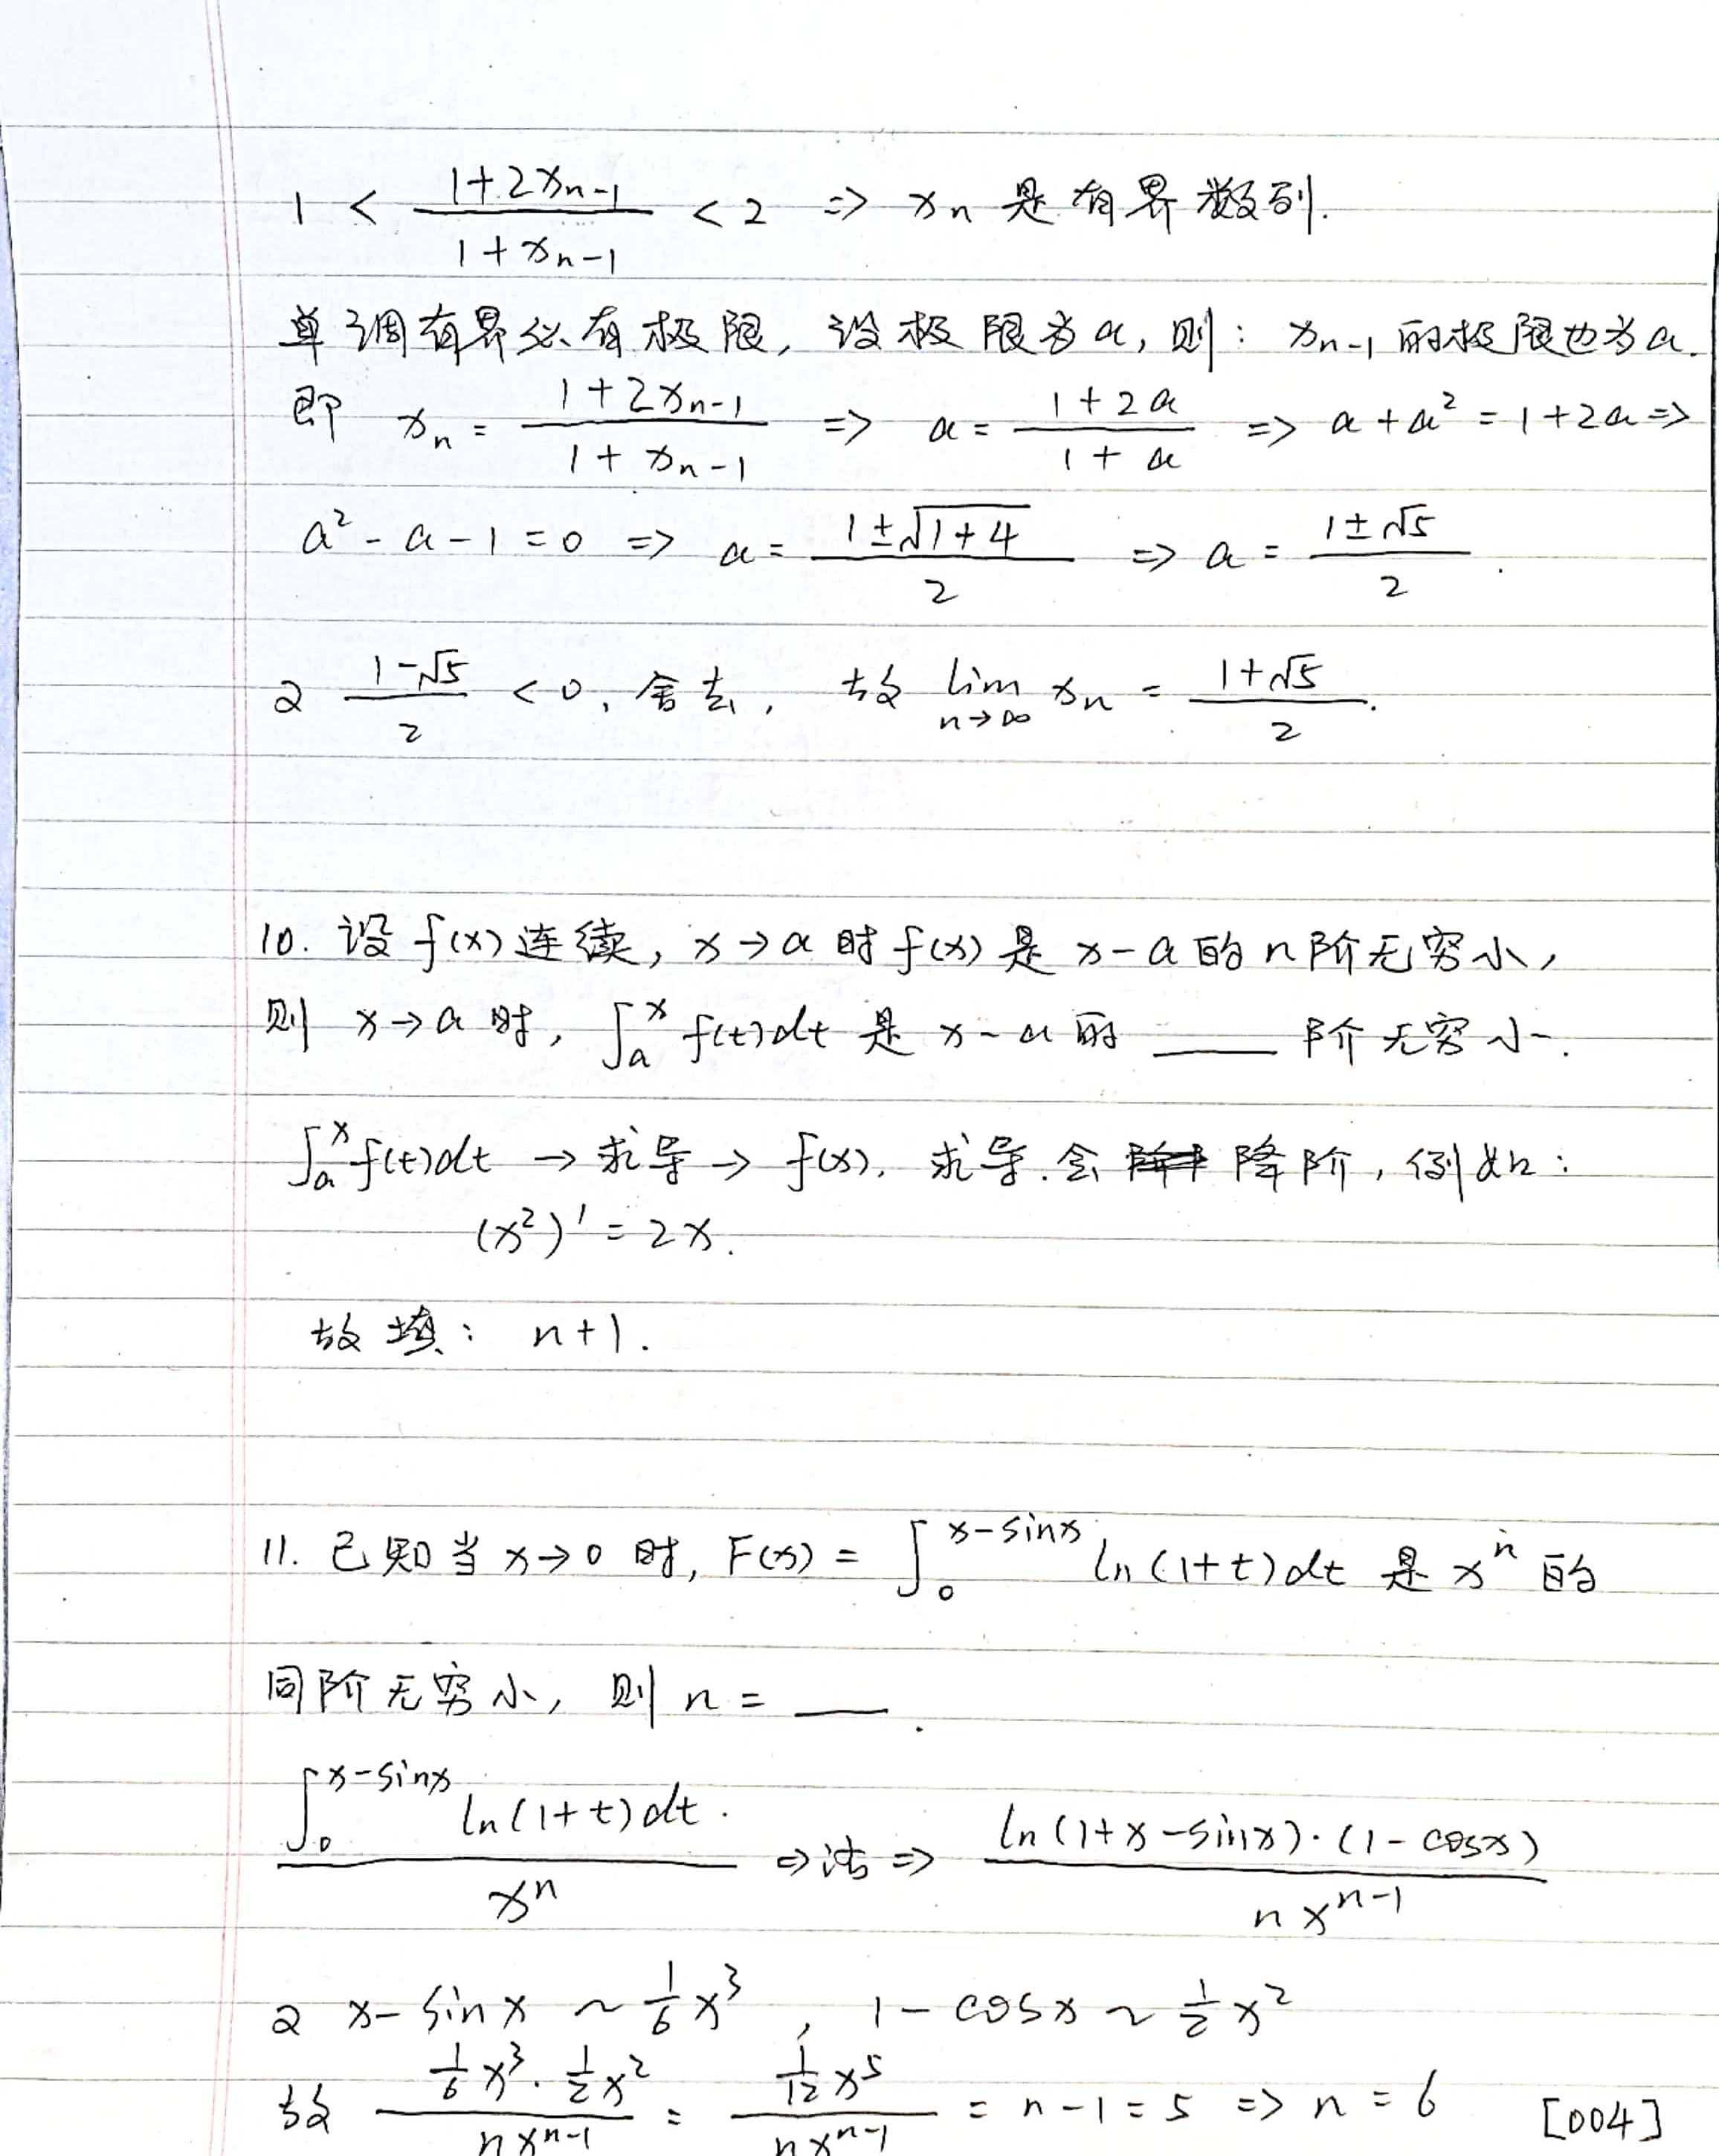 1 < (1+2xₙ₋₁)/(1+xₙ₋₁) < 2 => xₙ 是有界数列.
单调有界必有极限, 设极限为a, 则: xₙ₋₁ 的极限也为a.
即 xₙ = (1+2xₙ₋₁)/(1+xₙ₋₁) => a = (1+2a)/(1+a) => a+a² = 1+2a =>
a² - a - 1 = 0 => a = (1±√(1+4))/2 => a = (1±√5)/2.
又 (1-√5)/2 < 0, 舍去, 故 lim_{n→∞} xₙ = (1+√5)/2.
10. 设 f(x) 连续, x→a 时 f(x) 是 x-a 的 n 阶无穷小,
则 x→a 时, ∫ₐˣ f(t)dt 是 x-a 的 ____ 阶无穷小.
∫ₐˣ f(t)dt → 求导 → f(x), 求导会降阶, 例如:
(x²)' = 2x.
故填: n+1.
11. 已知当 x→0 时, F(x) = ∫₀^(x-sinx) ln(1+t)dt 是 xⁿ 的
同阶无穷小, 则 n = ____.
(∫₀^(x-sinx) ln(1+t)dt.)/(xⁿ) => 洛 => (ln(1+x-sinx)·(1-cosx))/(nxⁿ⁻¹)
又 x-sinx ~ 1/6 x³, 1-cosx ~ 1/2 x²
故 (1/6 x³ · 1/2 x²)/(nxⁿ⁻¹) = (1/12 x⁵)/(nxⁿ⁻¹) = n-1 = 5 => n = 6 [004]